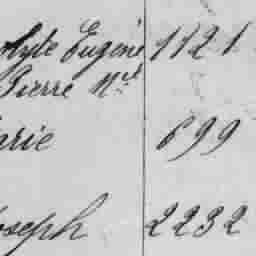 Eugène 1121
Pierre Nel
arie 699
oseph 2232